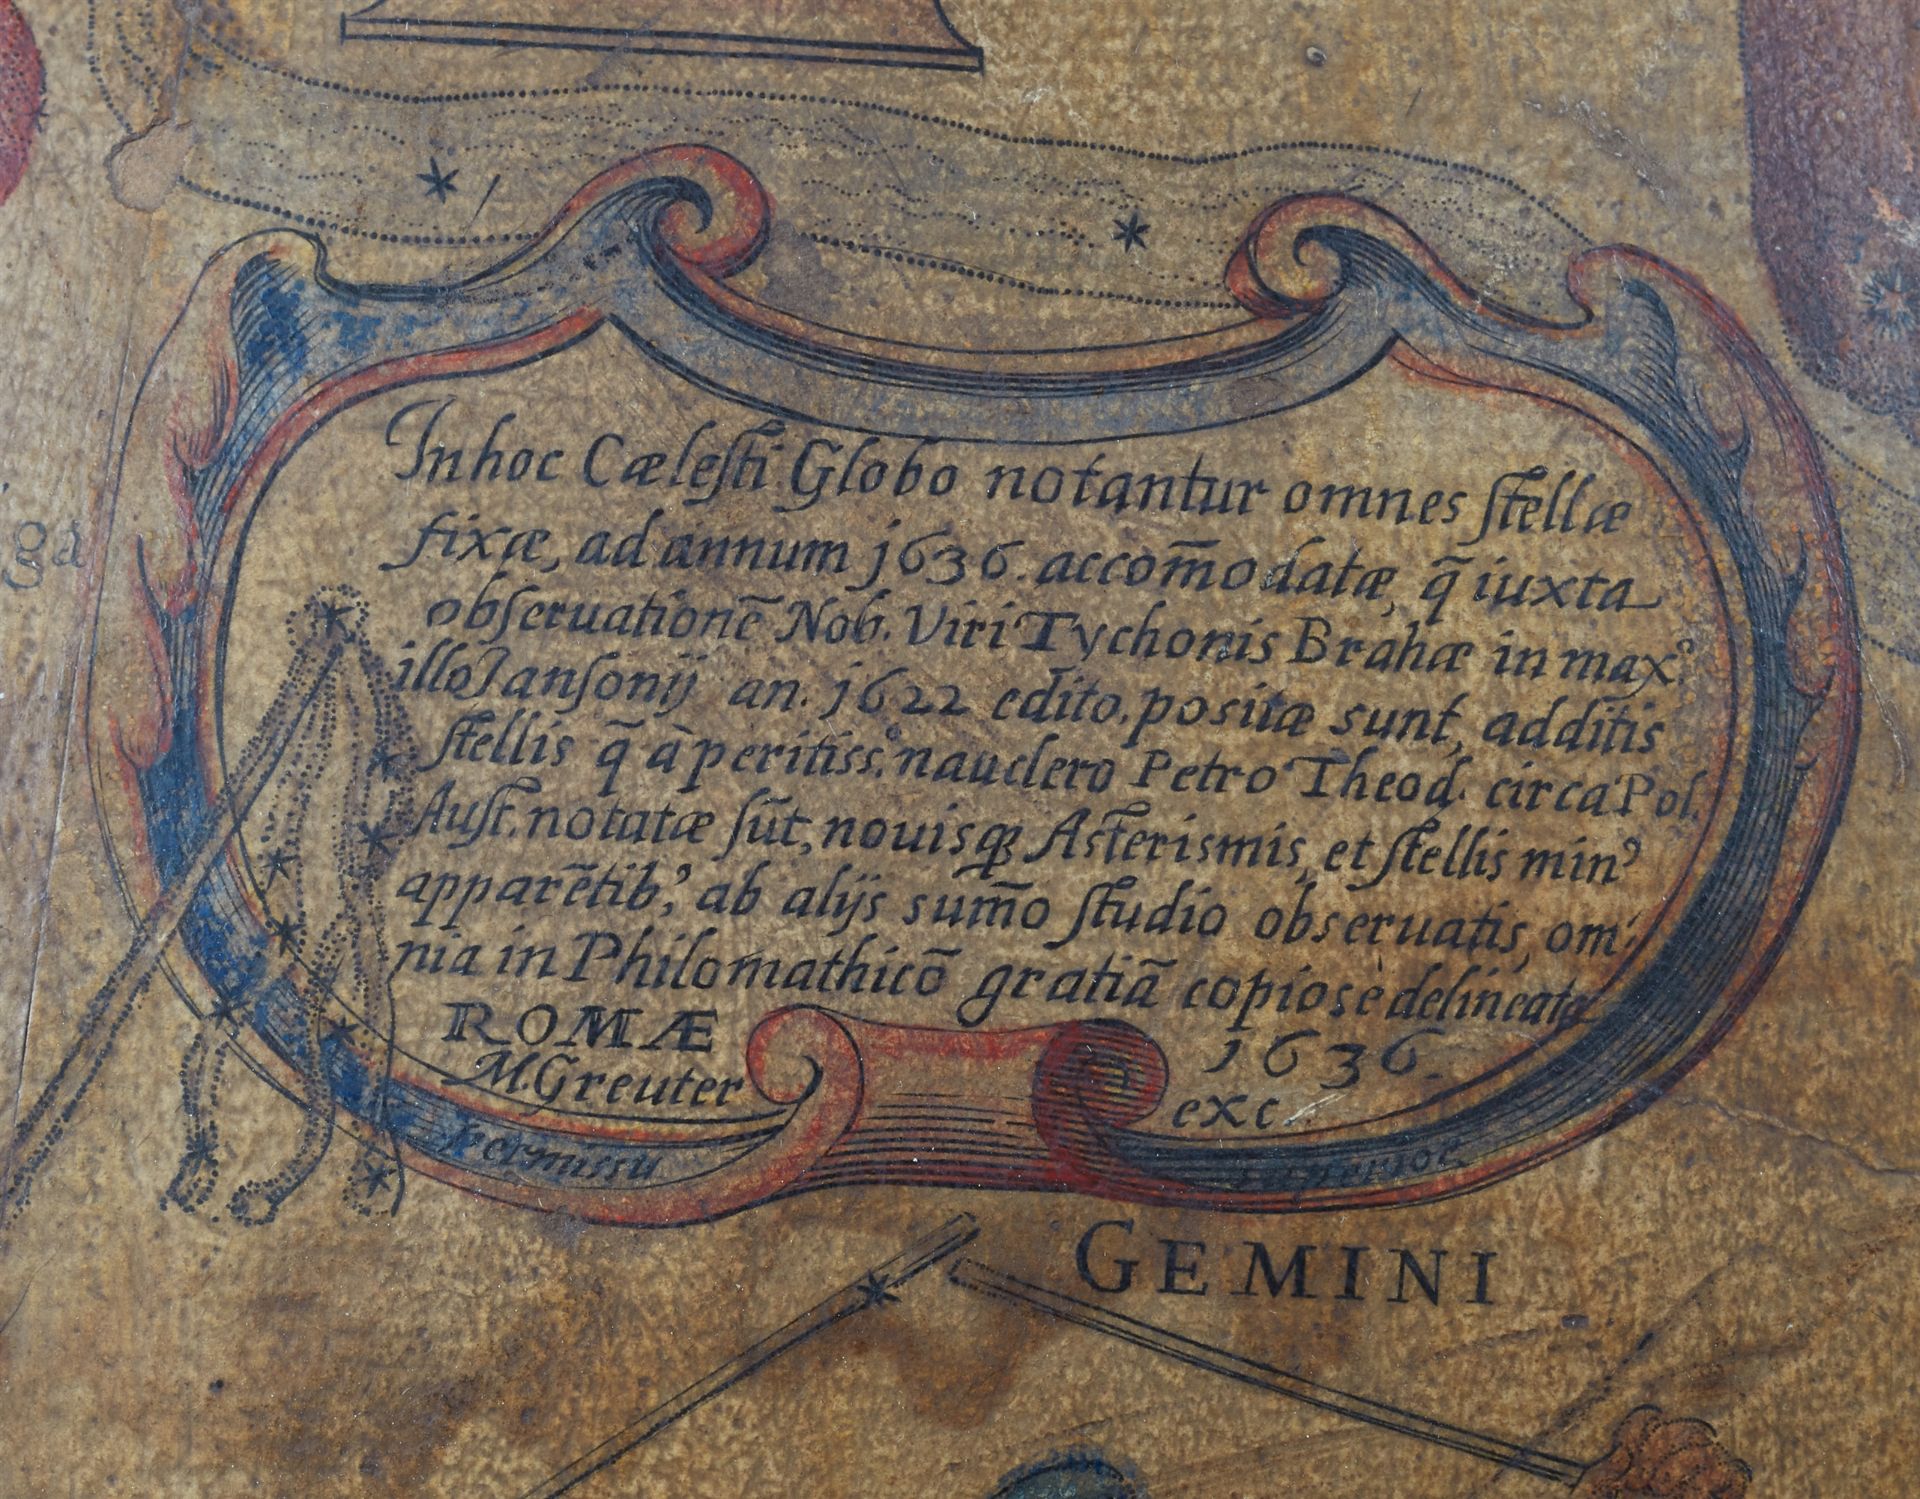 ga
In hoc Cælesti Globo notantur omnes stellæ
fixæ, ad annum 1636. accom̄odatæ, q̄ iuxta
obseruationē Nob. Viri Tychonis Brahæ in max.º
illo Jansonij an. 1622 edito, positæ sunt, additis
stellis q̄ à peritiss.º nauclero Petro Theod. circa Pol.
Aust. notatæ sūt, nouisq; Asterismis, et stellis min⁹
apparētib⁹, ab alijs sum̄o studio obseruatis, om-
nia in Philomathicō gratiā copiosè delineata
ROMÆ 1636.
M. Greuter exc
permissu superior.
GEMINI